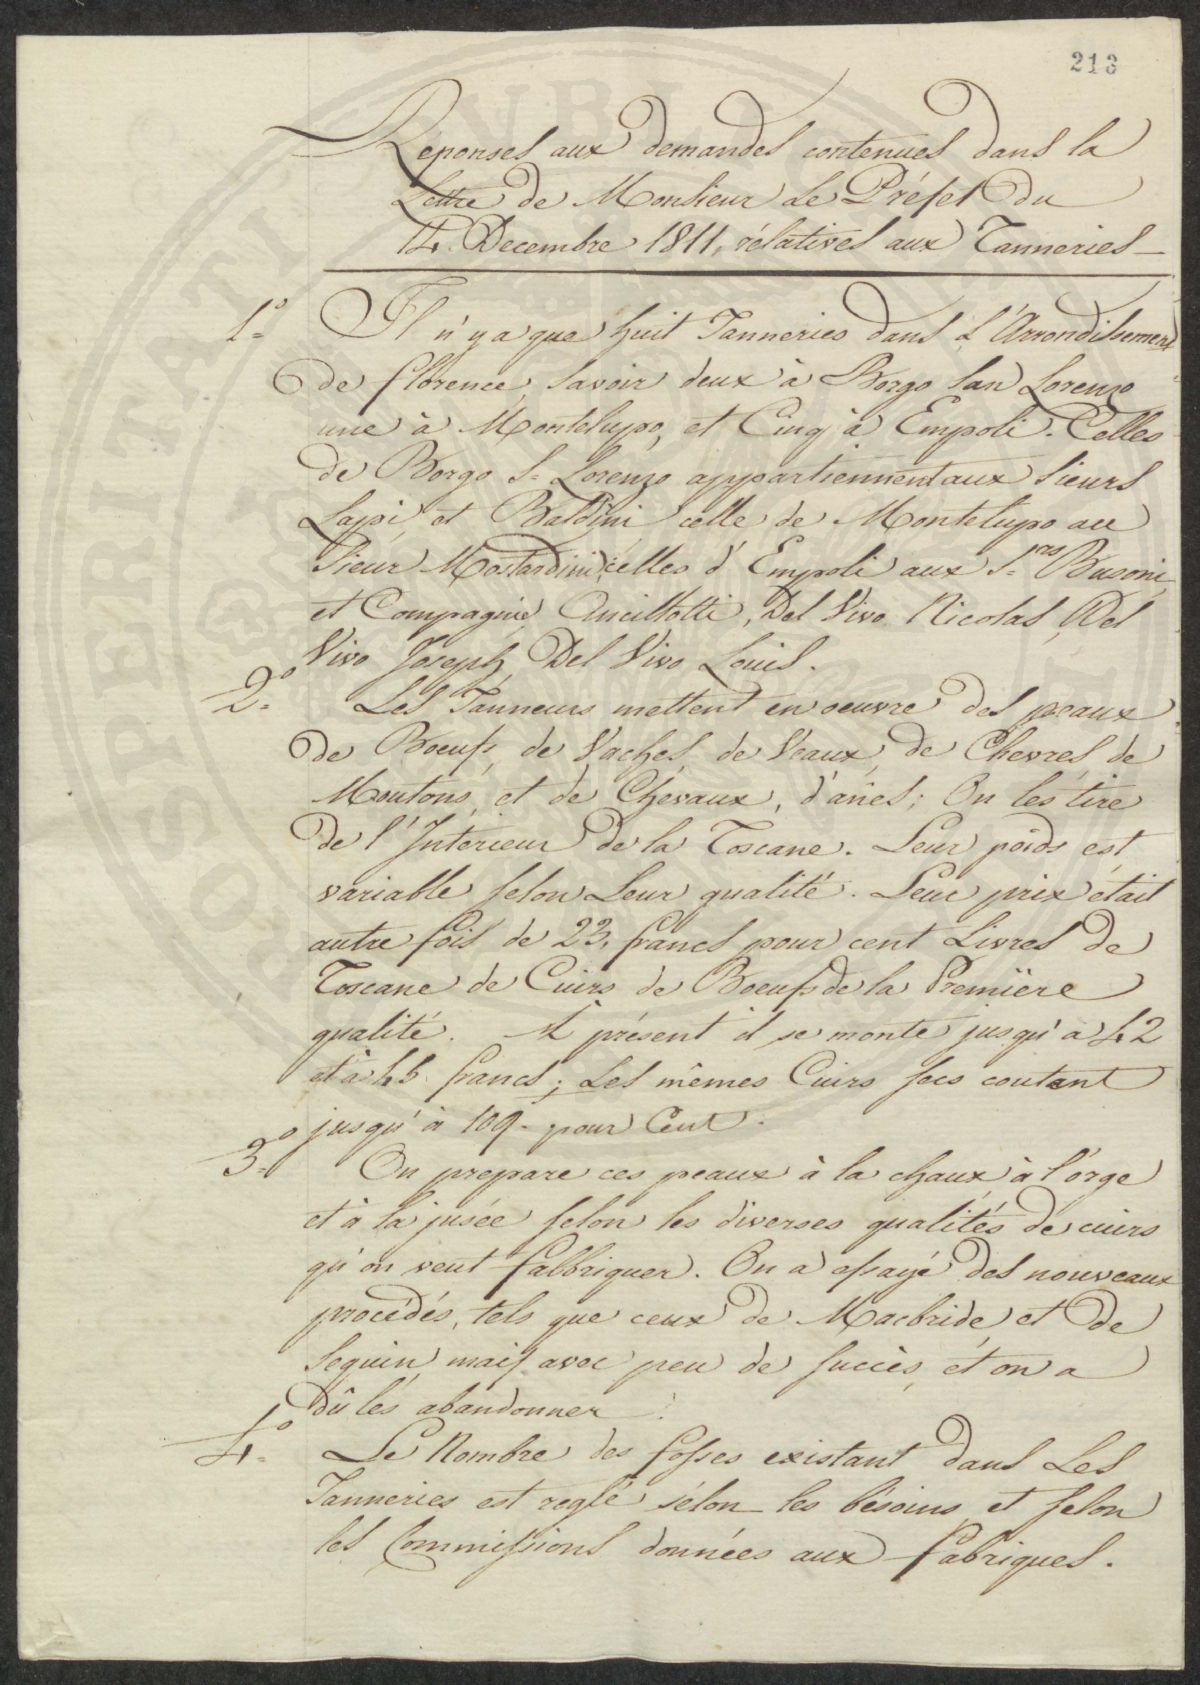 213
Réponses aux demandes contenues dans la
Lettre de Monsieur Le Préfet du
14. Decembre 1811, rélatives aux Tanneries
1º Il n'y a que huit Tanneries dans L'Arrondissement
de florence, savoir deux à Borgo San Lorenzo
une à Montelupo, et Cinq à Empoli. Celles
de Borgo S. Lorenzo appartiennent aux Sieurs
Lapi et Baldini celle de Montelupo au
Sieur Mostardini, celles d'Empoli aux S.rs Busoni,
et Compagnie, Ancillotti, Del Vivo Nicolas, Del
Vivo Joseph, Del Vivo Louis.
2º Les Tanneurs mettent en oeuvre des peaux
de Boeufs, de Vaches, de Veaux, de Chevres de
Moutons, et de Chevaux, d'anes; On les tire
de l'Intérieur de la Toscane. Leur poids est
variable selon Leur qualité. Leur prix était
autre fois de 23. francs pour cent Livres de
Toscane de Cuirs de Boeufs de la Premiere
qualité. A présent il se monte jusqu'a 42
et à francs; Les mêmes Cuirs secs coutent
jusqu'à 109. pour Cent.
3º On prepare ces peaux à la chaux à l'orge
et à la jusée selon les diverses qualités de cuirs
qu'on veut fabbriquer. On a essayé des nouveaux
procédés, tels que ceux de Macbride et de
Seguin, mais avec peu de succès, et on a
dû les abandonner.
4º Le Nombre des fosses existant dans Les
Tanneries est reglé sélon les bésoins et selon
les Commissions données aux fabriques.